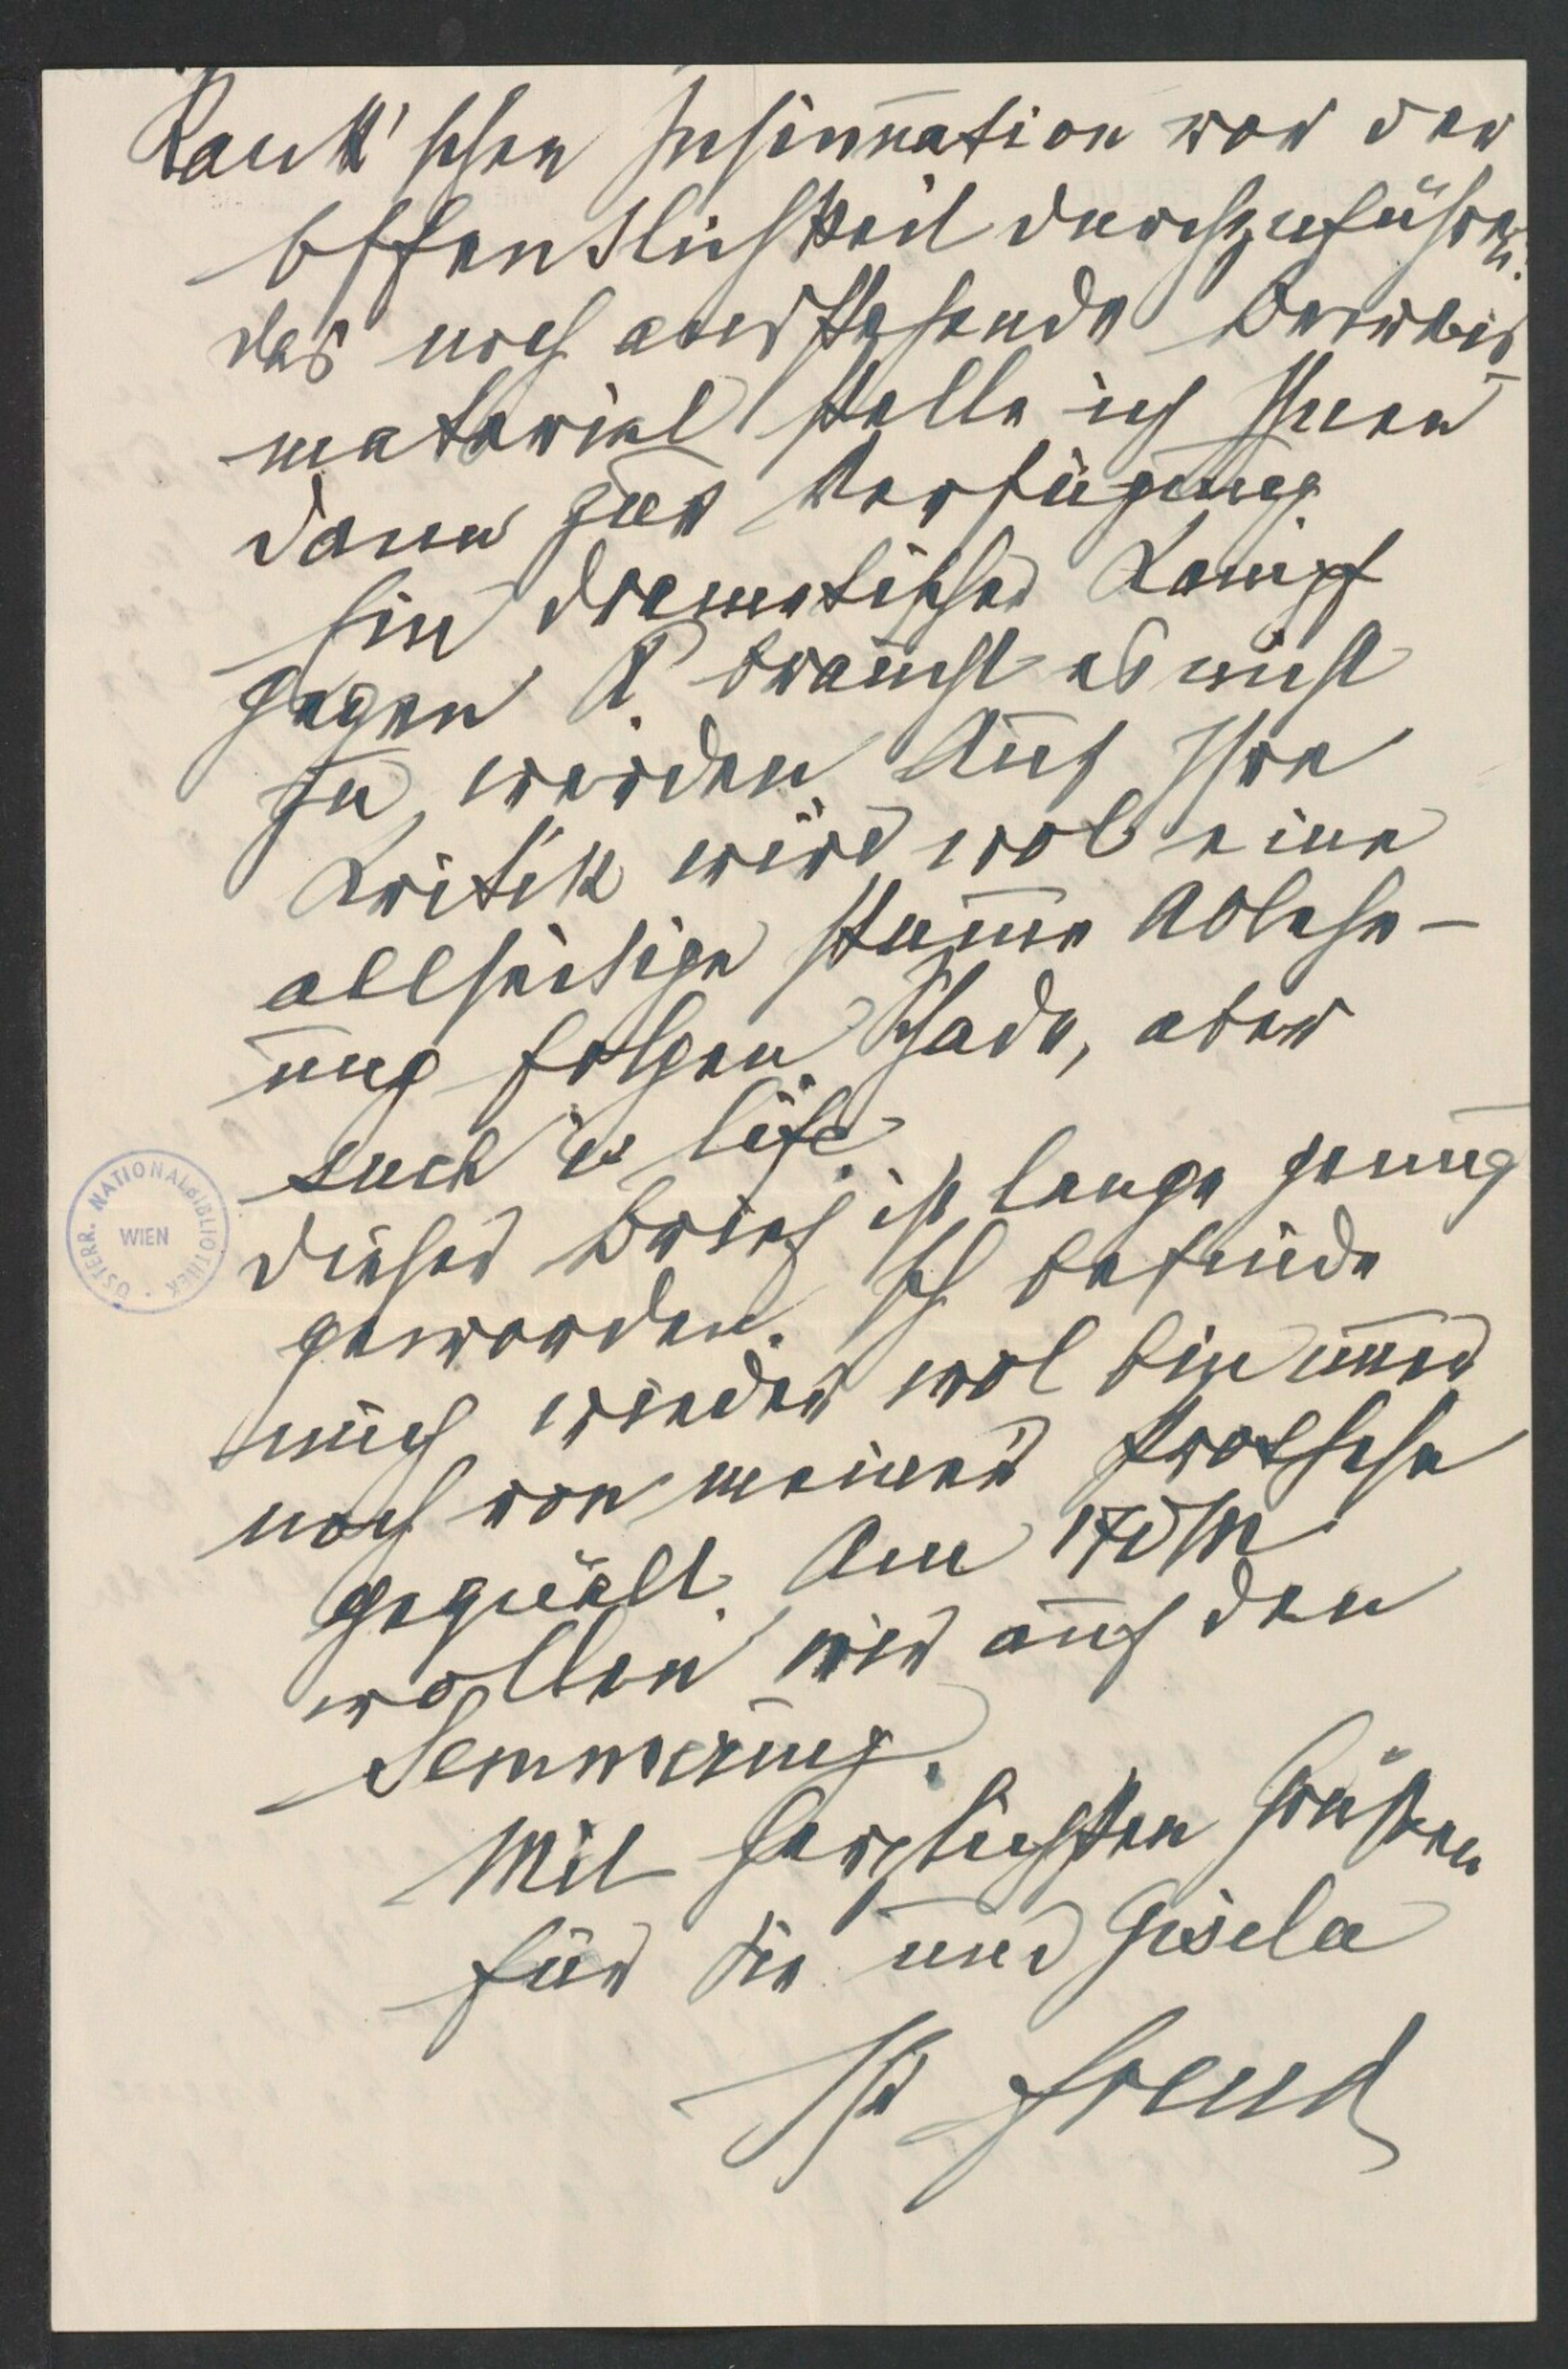 Rank'schen Insinuation vor der
Öffentlichkeit durchzuführen.
das noch ausstehende Beweis
material stelle ich Ihnen
dann zur Verfügung.
Ein dramatischer Kampf
gegen R. braucht es nicht
zu werden. Auf Ihre
Kritik wird wol eine
allseitige stumme Ableh-
nung folgen. Schade, aber
such is life.
Dieser Brief ist lange genug
geworden. Ich befinde
mich wieder wol bin immer
noch von meiner Prothese
gequält. Am 17 d M
wollen wir auf den
Semmering.
Mit herzlichsten Grüßen
für Sie und Gisela
Ihr Freud
ÖSTERR. NATIONALBIBLIOTHEK
WIEN